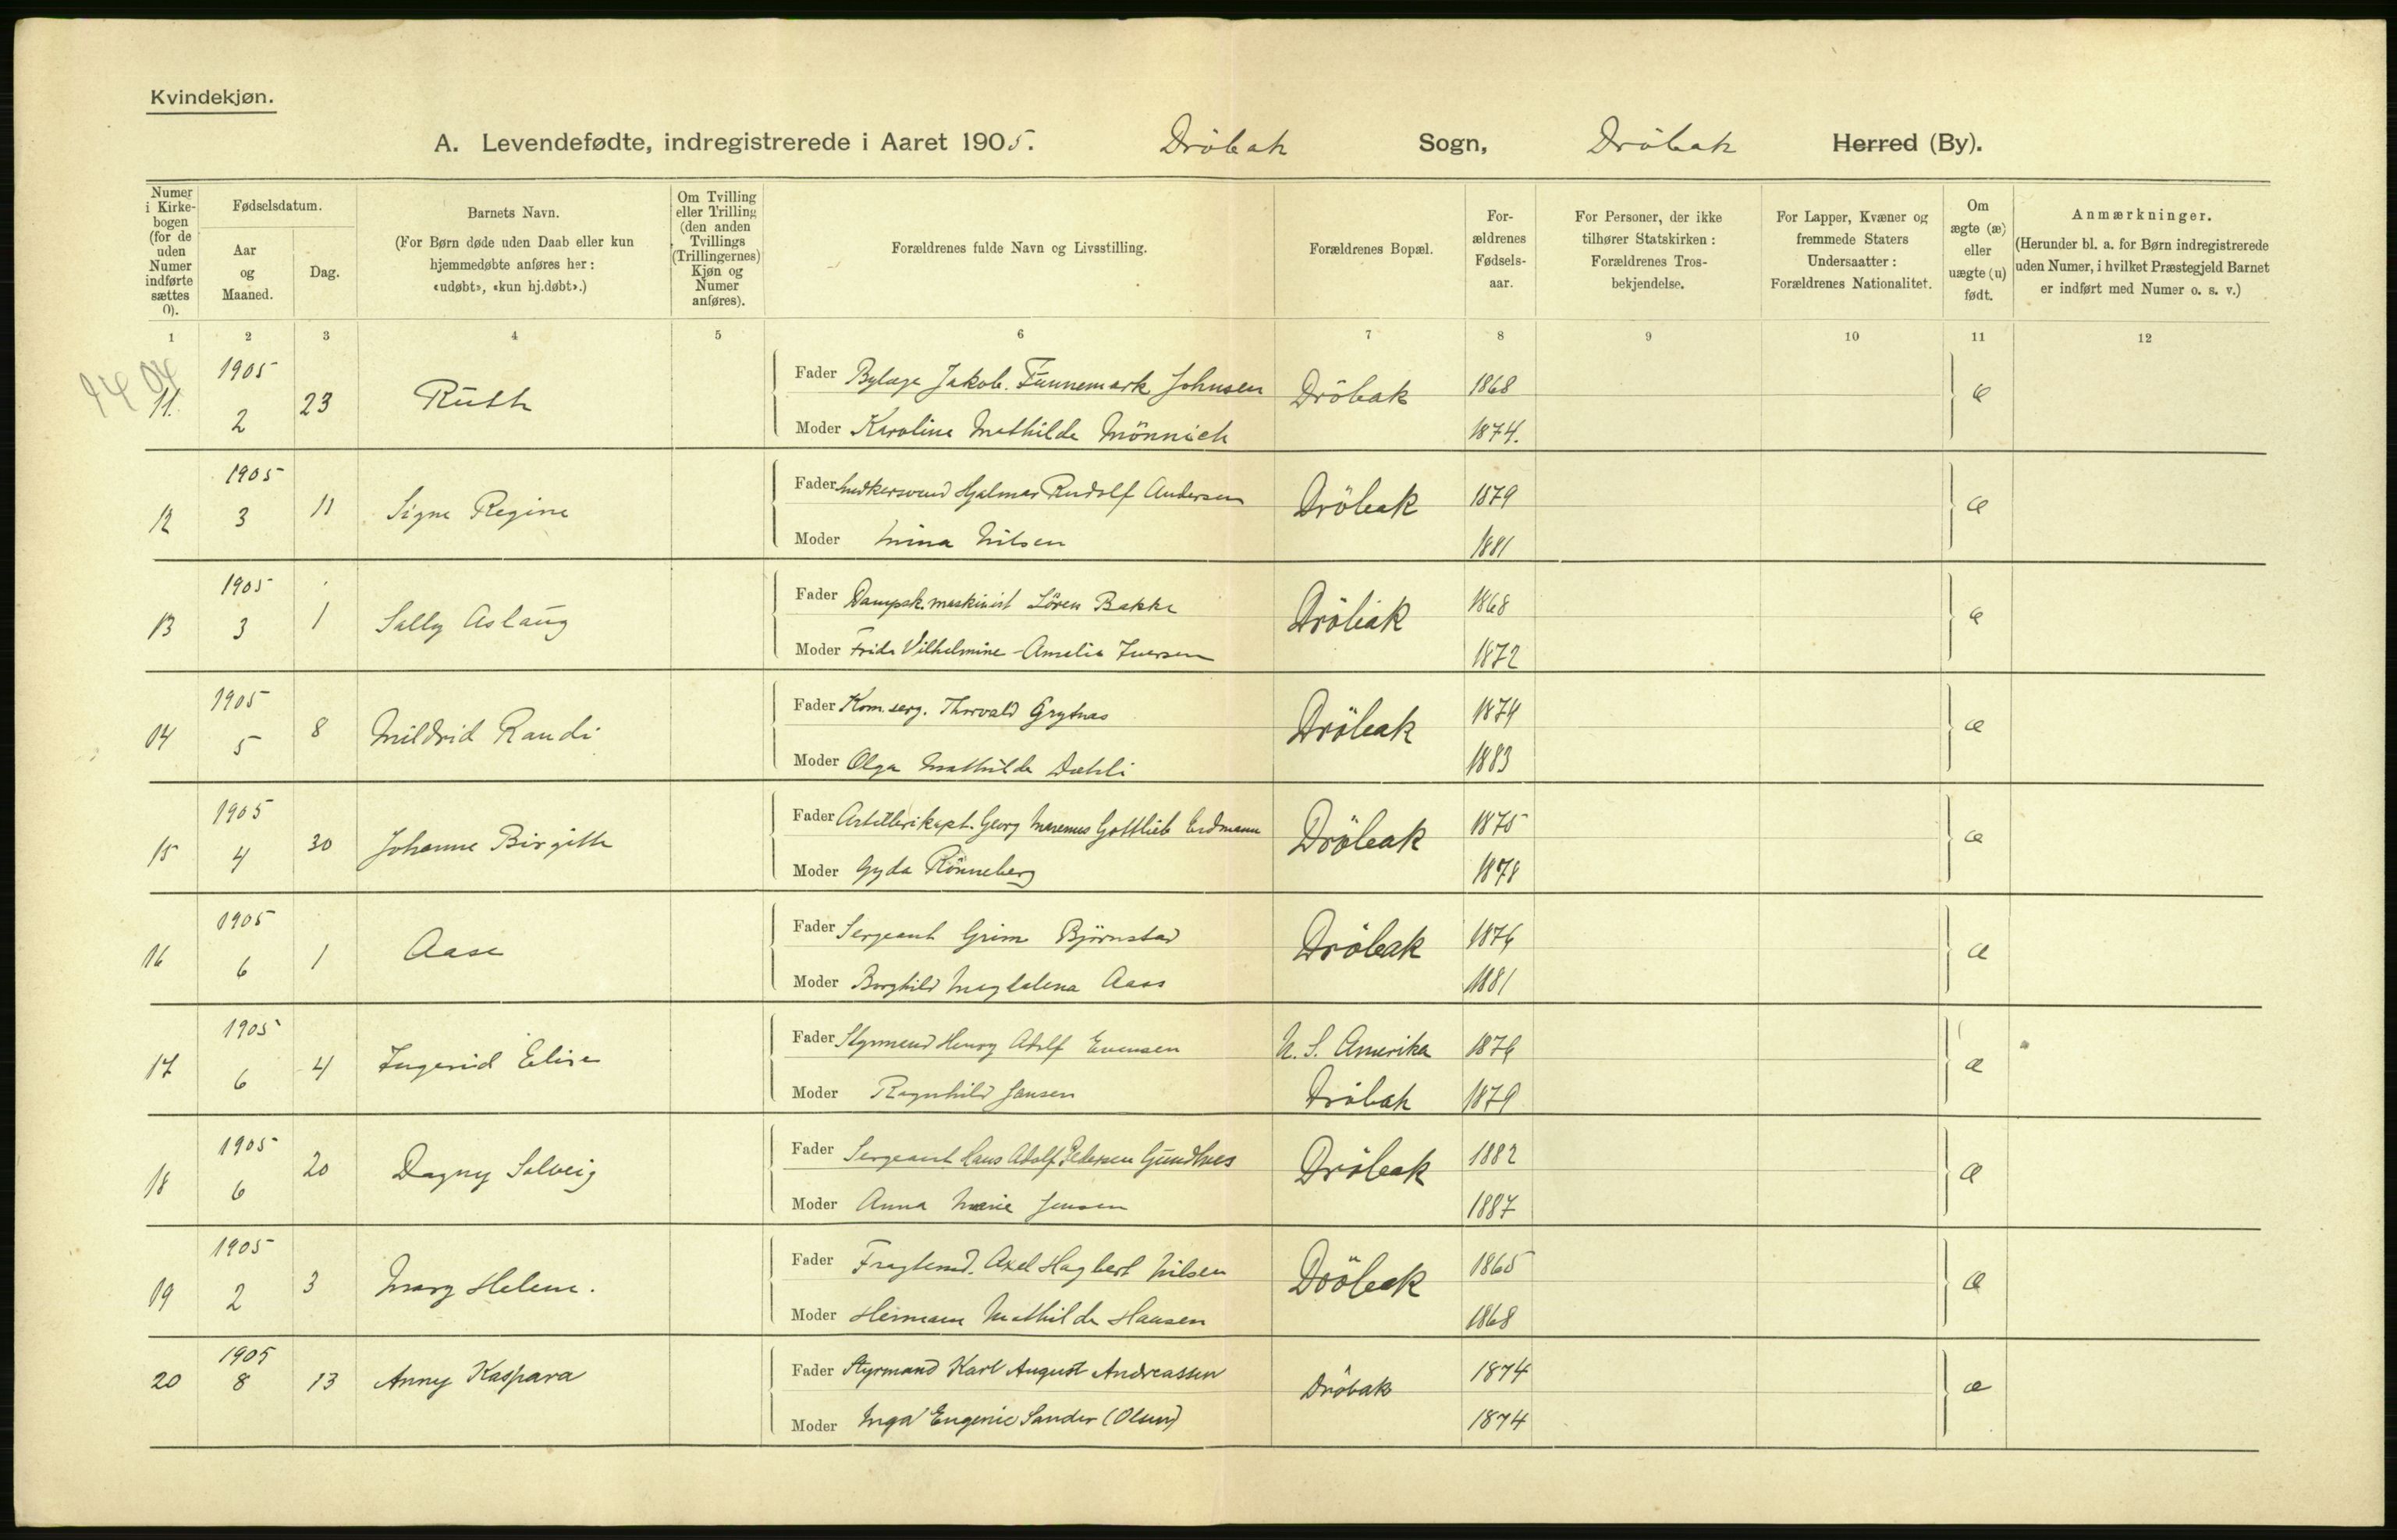 Kvindekjøn.
A. Levendefødte, indregistrerede i Aaret 1905. Dröbak Sogn, Dröbak Herred (By).
Numer i Kirkebogen (for de uden Numer indførte sættes 0).
Fødselsdatum.
Aar og Maaned.
Dag.
Barnets Navn.
(For Børn døde uden Daab eller kun hjemmedøbte anføres her: «udøbt», «kun hj.døbt».)
Om Tvilling eller Trilling (den anden Tvillings (Trillingernes) Kjøn og Numer anføres).
Forældrenes fulde Navn og Livsstilling.
Forældrenes Bopæl.
Forældrenes Fødselsaar.
For Personer, der ikke tilhører Statskirken: Forældrenes Trosbekjendelse.
For Lapper, Kvæner og fremmede Staters Undersaatter: Forældrenes Nationalitet.
Om ægte (æ) eller uægte (u) født.
Anmærkninger.
(Herunder bl. a. for Børn indregistrerede uden Numer, i hvilket Præstegjeld Barnet er indført med Numer o. s. v.)
1 2 3 4 5 6 7 8 9 10 11 12
11. 1905 2 23 Ruth Fader Bylæge Jakob. Funnemark Johnsen Dröbak 1868 æ
Moder Karoline Mathilde Mönnich 1874.
12 1905 3 11 Signe Regine Fader Hjalmar Rudolf Andersen Dröbak 1879 æ
Moder Mina Nilsen 1881
13 1905 3 1 Sally Aslaug Fader Dampsk.maskinist Sören Bakke Dröbak 1868 æ
Moder Frida Vilhelmine Amelia Iversen 1872
14 1905 5 8 Mildrid Randi Fader Kom.serg. Thorvald Grytnes Dröbak 1874 æ
Moder Olga Mathilde Dæhli 1883
15 1905 4 30 Johanne Birgitte Fader Artillerikapt. Georg Marenus Gottlieb Erdmann Dröbak 1875 æ
Moder Gyda Rönneberg 1878
16 1905 6 1 Aase Fader Sergeant Grim Björnstad Dröbak 1876 æ
Moder Borghild Magdalena Aass 1881
17 1905 6 4 Ingerid Elise Fader Styrmand Henry Adolf Evensen N. S. Amerika 1876 æ
Moder Ragnhild Jansen Dröbak 1879
18 1905 6 20 Dagny Solveig Fader Sergeant Hans Adolf Pedersen Gundhus Dröbak 1882 æ
Moder Anna Marie Jensen 1887
19 1905 2 3 Mary Helene. Fader Axel Hagbert Nilsen Dröbak 1865 æ
Moder Mathilde Hansen 1868
20 1905 8 13 Anny Kaspara Fader Styrmand Karl August Andreassen Dröbak 1874 æ
Moder Inga Eugenie Sander (Olsen) 1874